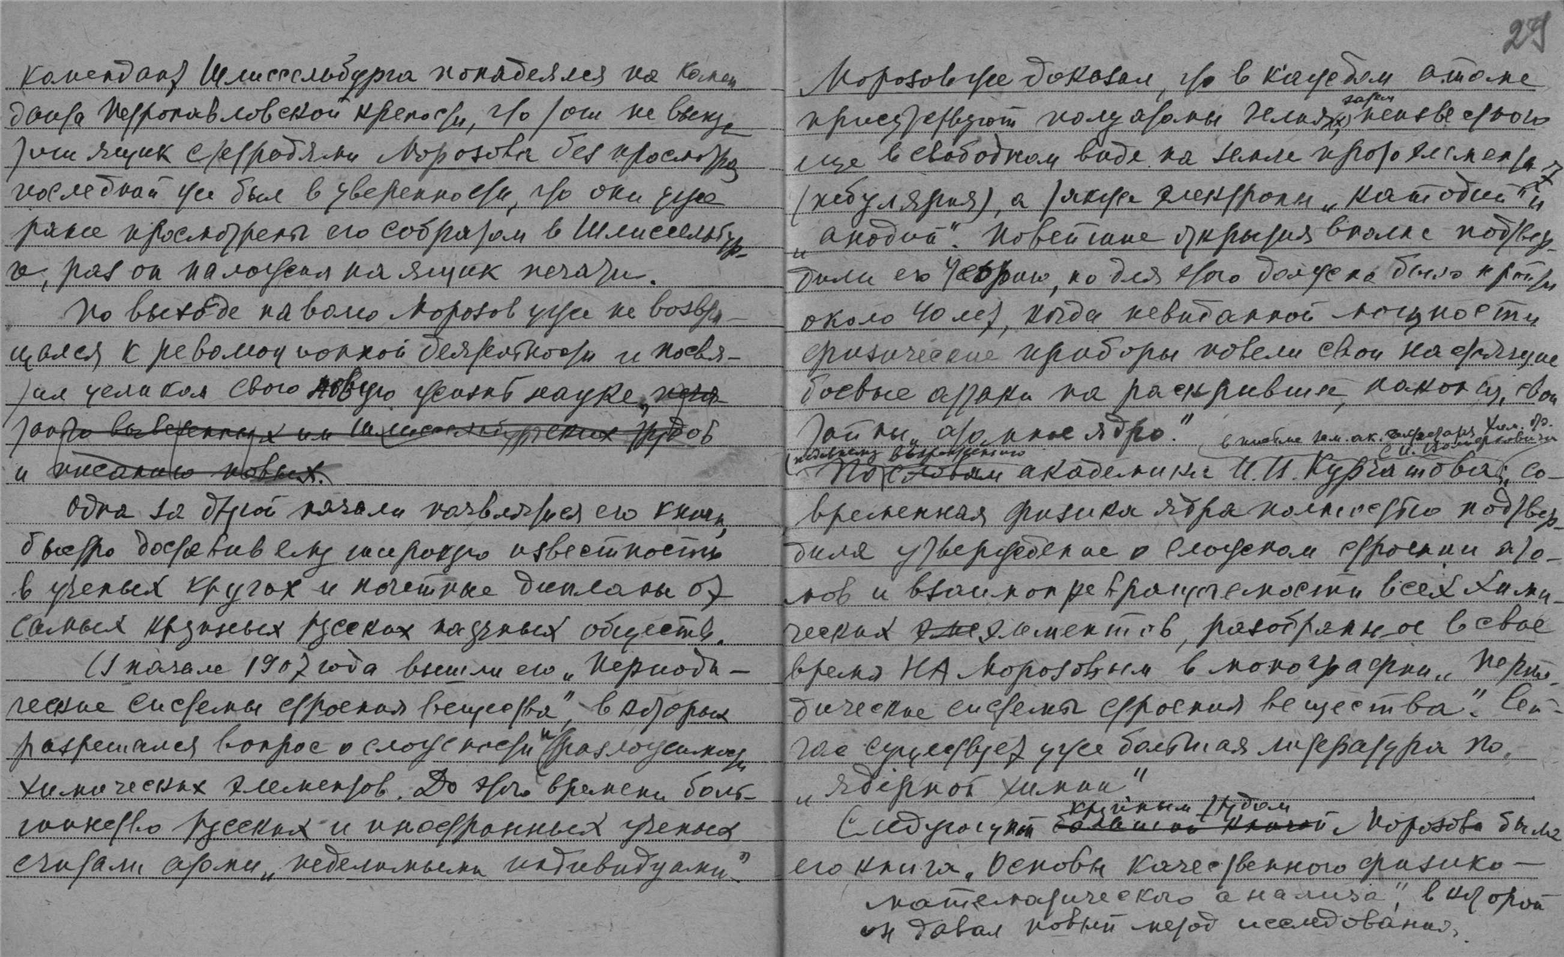 комендант Шлиссельбурга понадеялся на комен
данта Петропавловской крепости, что тот не выпус
тит ящик с тетрадями Морозова без просмотра,
последний же был в уверенности, что они уже
ранее просмотрены его собратом в Шлиссельбур-
ге, раз он наложил на ящик печати.
По выходе на волю Морозов уже не возвра-
щался к революционной деятельности и посвя-
тил целиком свою новую жизнь науке,
вывезенных им Шлиссельбургских трудов
и писанию новых.
Одна за другой начали появляться его книги,
быстро доставив ему широкую известность
в ученых кругах и почетные дипломы от
самых крупных русских научных обществ.
В начале 1907 года вышли его „Периоди-
ческие системы строения вещества", в которых
разрешался вопрос о сложности и разложимости
химических элементов. До этого времени боль-
шинство русских и иностранных ученых
считали атомы „неделимыми индивидуами".
29
Морозов же доказал, что в каждом атоме
присутствуют полуатомы гелия, затем неизвестного
еще в свободном виде на земле прото элемента
(небулярия), а также электроны „катодий" и
„анодий". Новейшие открытия вполне подтвер-
дили его теорию, но для этого должно было пройти
около 40 лет, когда невиданной мощности
физические приборы повели свои настоящие
боевые атаки на раскрывшие, наконец, свои
тайны „атомное ядро."
в письме
По словам академика И. И. Курчатова, „со-
временная физика ядра полностью подтвер-
дила утверждение о сложном строении ато-
мов и взаимопревращаемости всех хими-
ческих элементов, разобранное в свое
время НА Морозовым в монографии „Перио-
дические системы строения вещества". Сей-
час существует уже большая литература по
„ядерной химии"
крупным трудом
Следующей большой книгой Морозова была
его книга „Основы качественного физико-
математического анализа", в которой
он давал новый метод исследования.